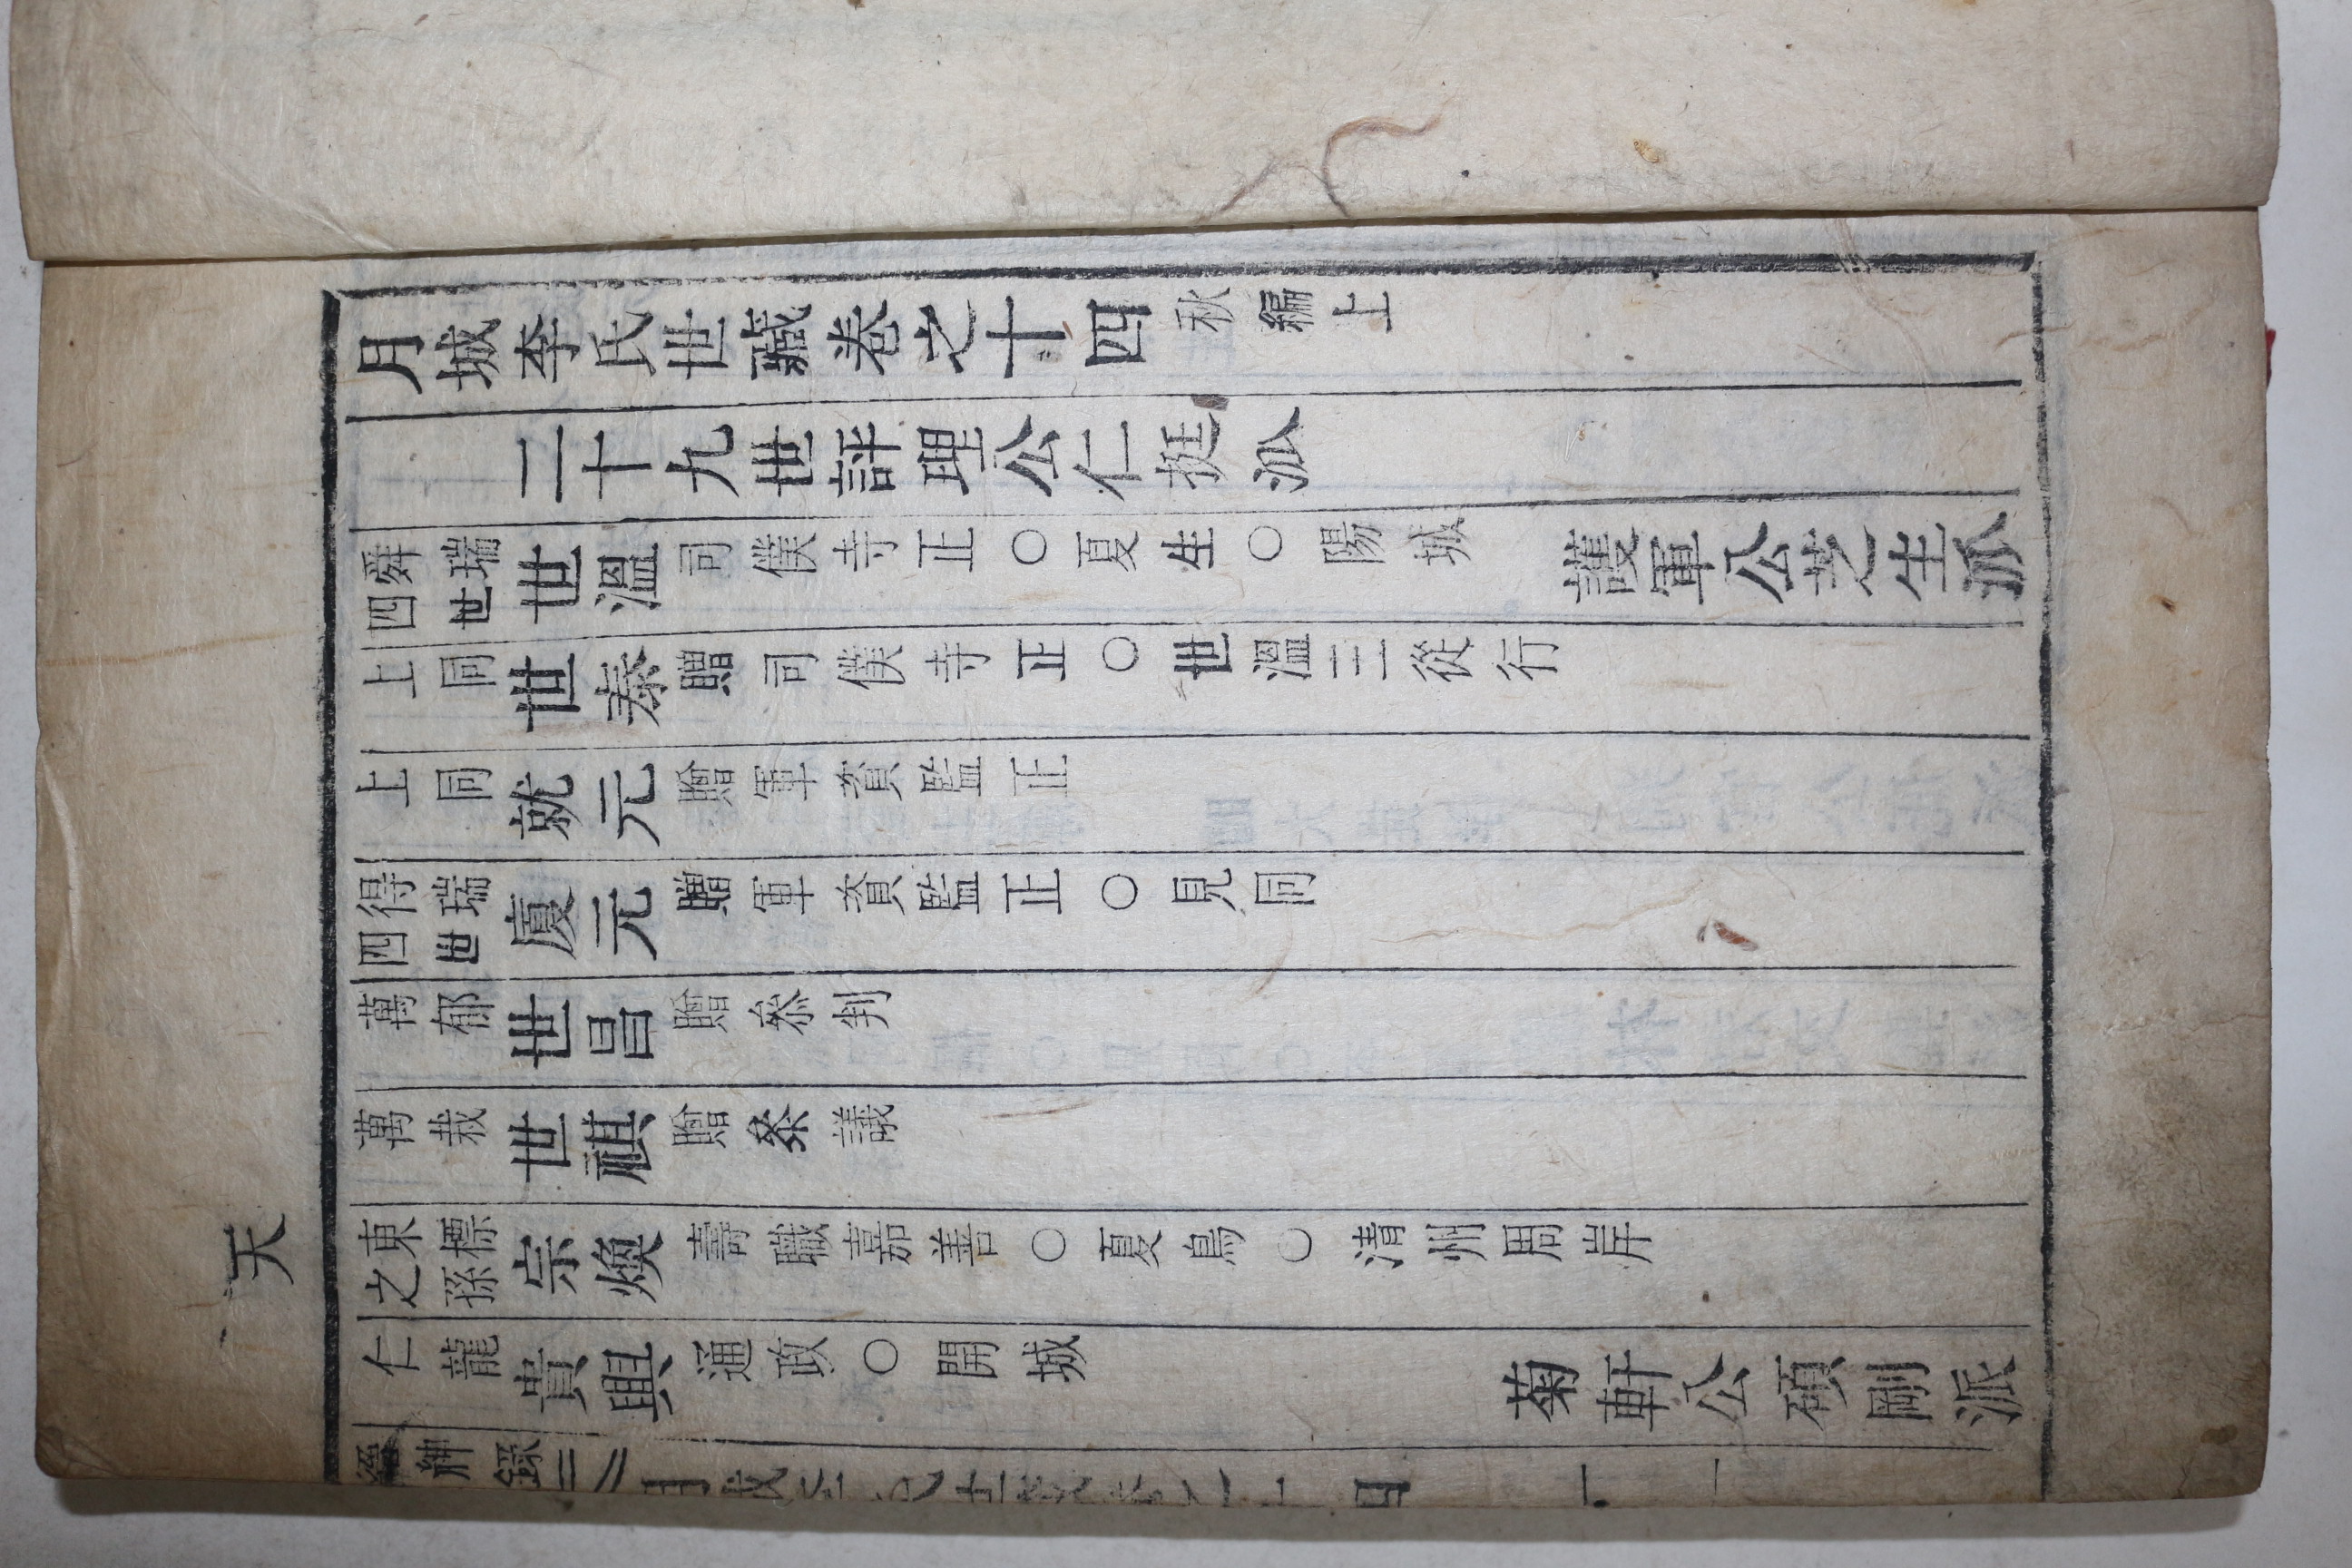 天
月城李氏世藏卷之十四 秋編上
二十九世評理公仁挺派
舜瑞四世 世溫 司僕寺正○夏生○陽城 護軍公芝生派
上同 世泰 贈司僕寺正○世溫三從行
上同 就元 贈軍資監正
得瑞四世 廈元 贈軍資監正○見同
萬郁 世昌 贈叅判
萬栽 世祺 贈叅議
東標之孫 宗煥 壽職嘉善○夏鳥○清州周岸
仁龍 貴興 通政○開城 菊軒公碩剛派
紳錄